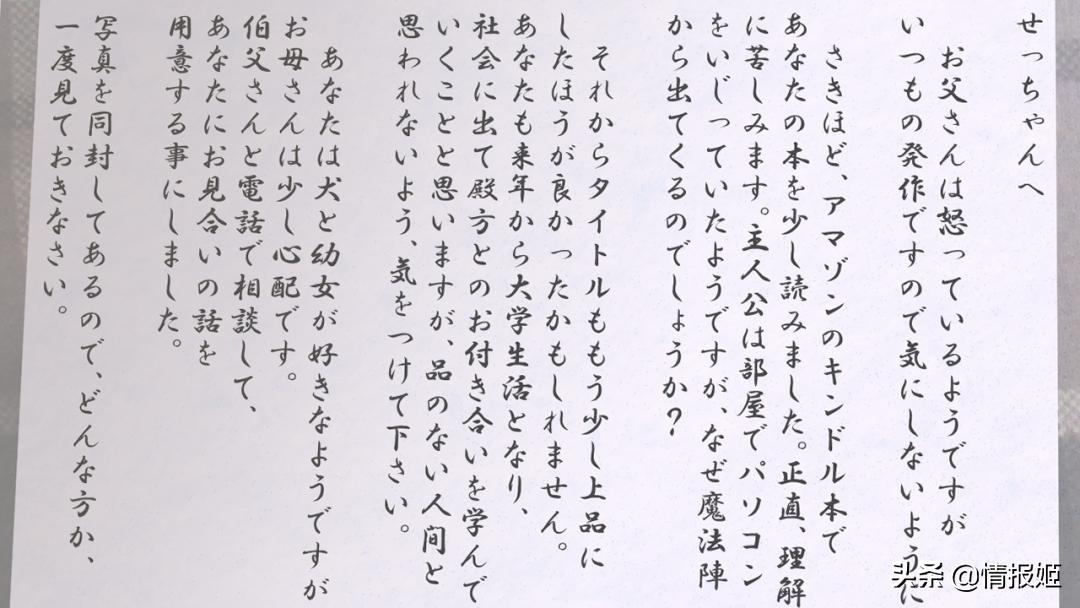 せっちゃんへ
お父さんは怒っているようですが
いつもの発作ですので気にしないように
さきほど、アマゾンのキンドル本で
あなたの本を少し読みました。正直、理解
に苦しみます。主人公は部屋でパソコン
をいじっていたようですが、なぜ魔法陣
から出てくるのでしょうか？
それからタイトルももう少し上品に
したほうが良かったかもしれません。
あなたも来年から大学生活となり、
社会に出て殿方とのお付き合いを学んで
いくことと思いますが、品のない人间と
思われないよう、気をつけて下さい。
あなたは犬と幼女が好きなようですが
お母さんは少し心配です。
伯父さんと電話で相談して、
あなたにお見合いの話を
用意する事にしました。
写真を同封してあるので、どんな方か、
一度見ておきなさい。
头条 @情报姬